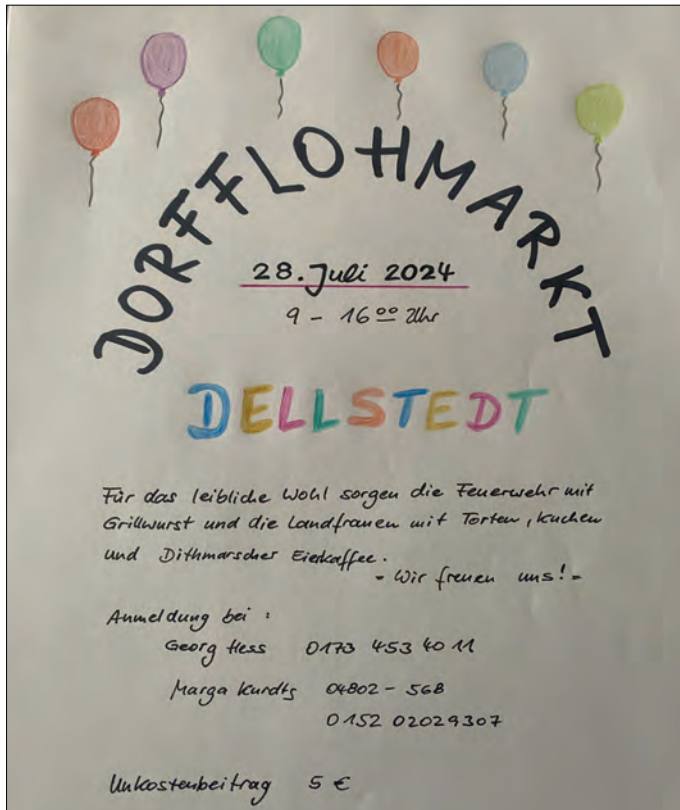 DORFFLOHMARKT
28. Juli 2024
9 - 16⁰⁰ Uhr
DELLSTEDT
Für das leibliche Wohl sorgen die Feuerwehr mit
Grillwurst und die Landfrauen mit Torten, Kuchen
und Dithmarscher Eierkaffee.
- Wir freuen uns! -
Anmeldung bei :
Georg Hess 0173 453 40 11
Marga Kurdts 04802 - 568
0152 02029307
Unkostenbeitrag 5 €